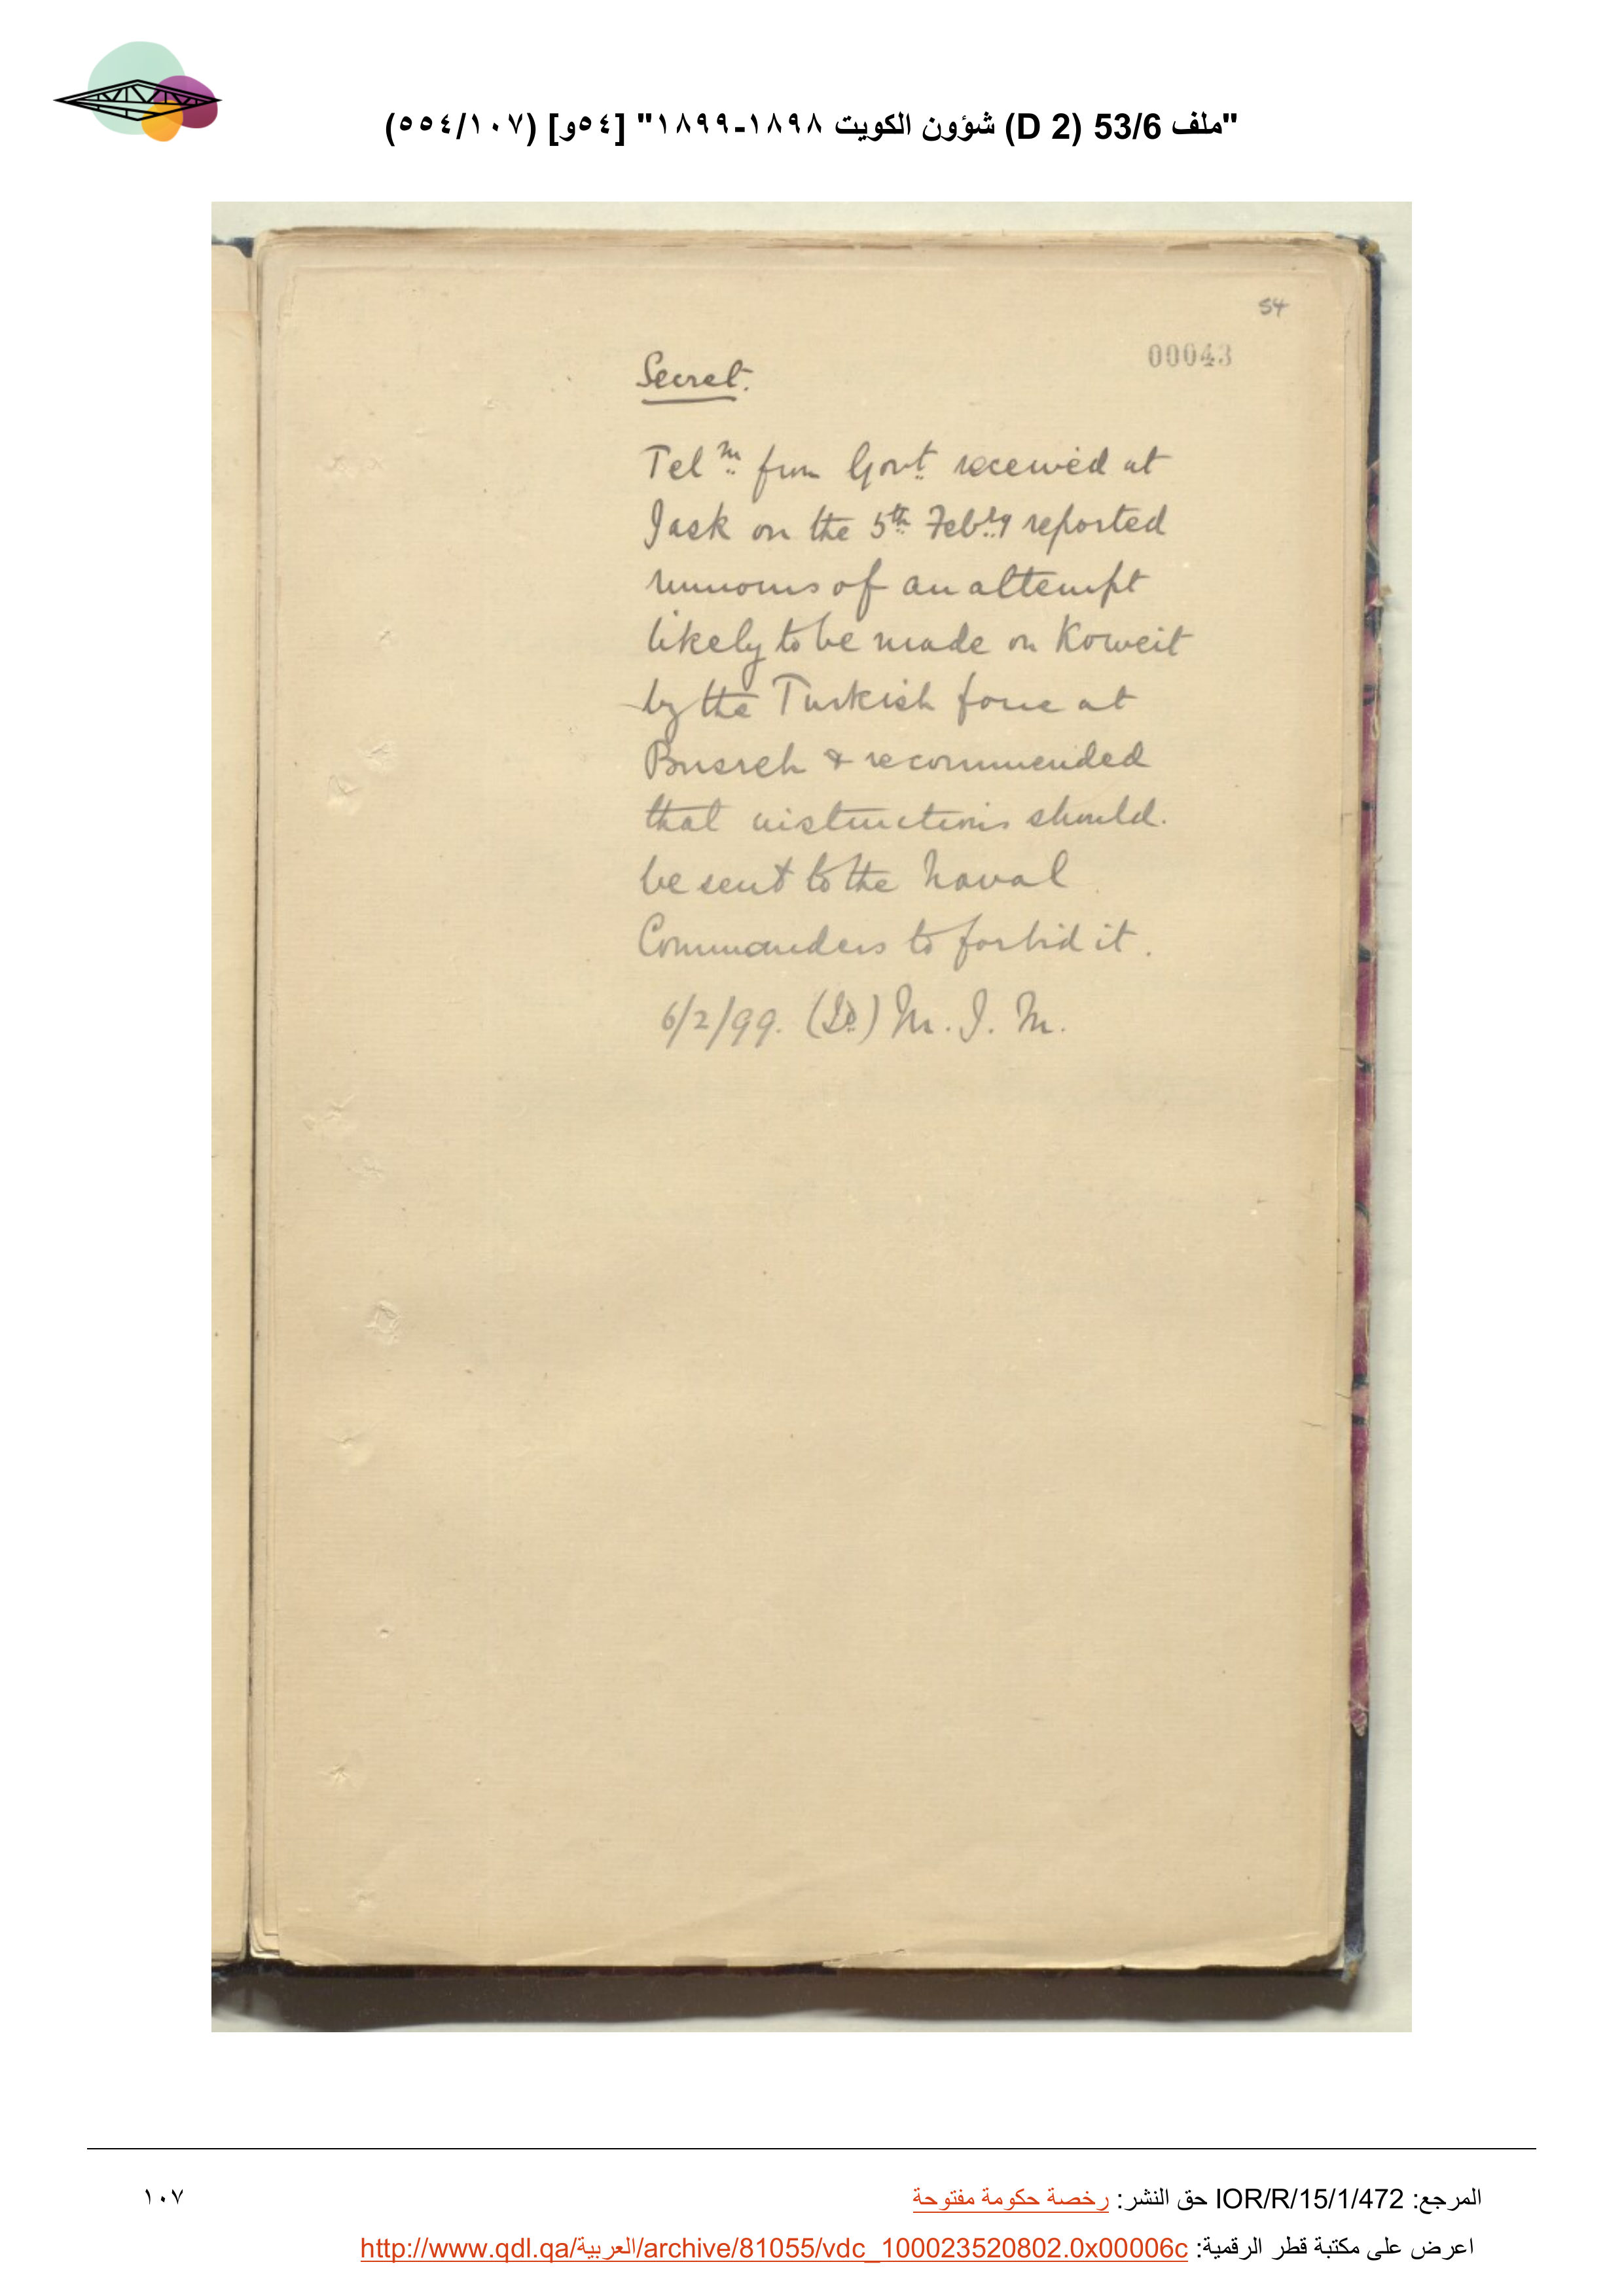 "ملف 53/6 (D 2) شؤون الكويت ١٨٩٨-١٨٩٩" [٥٤و] (٥٥٤/١٠٧)
54
00043
Secret.
Telm from Govt received at
Jask on the 5th Feby reported
rumours of an attempt
likely to be made on Koweit
by the Turkish force at
Busreh & recommended
that instructions should
be sent to the Naval
Commanders to forbid it.
6/2/99. (Sd) M. J. M.
المرجع: IOR/R/15/1/472 حق النشر: رخصة حكومة مفتوحة
١٠٧
اعرض على مكتبة قطر الرقمية: http://www.qdl.qa/العربية/archive/81055/vdc_100023520802.0x00006c